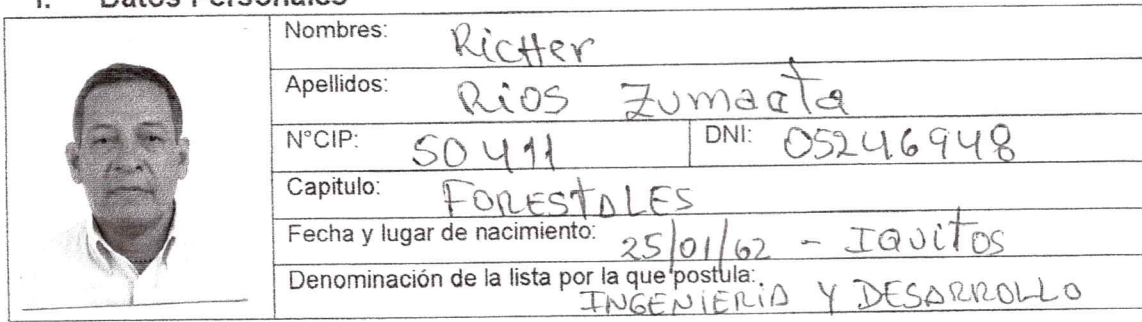 I. Datos Personales
Nombres: RicHer
Apellidos: Rios Zumaeta
N°CIP: 50411 DNI: 05246948
Capitulo: FORESTALES
Fecha y lugar de nacimiento: 25/01/62 - IQUitos
Denominación de la lista por la que postula: INGENIERIA Y DESARROLLO